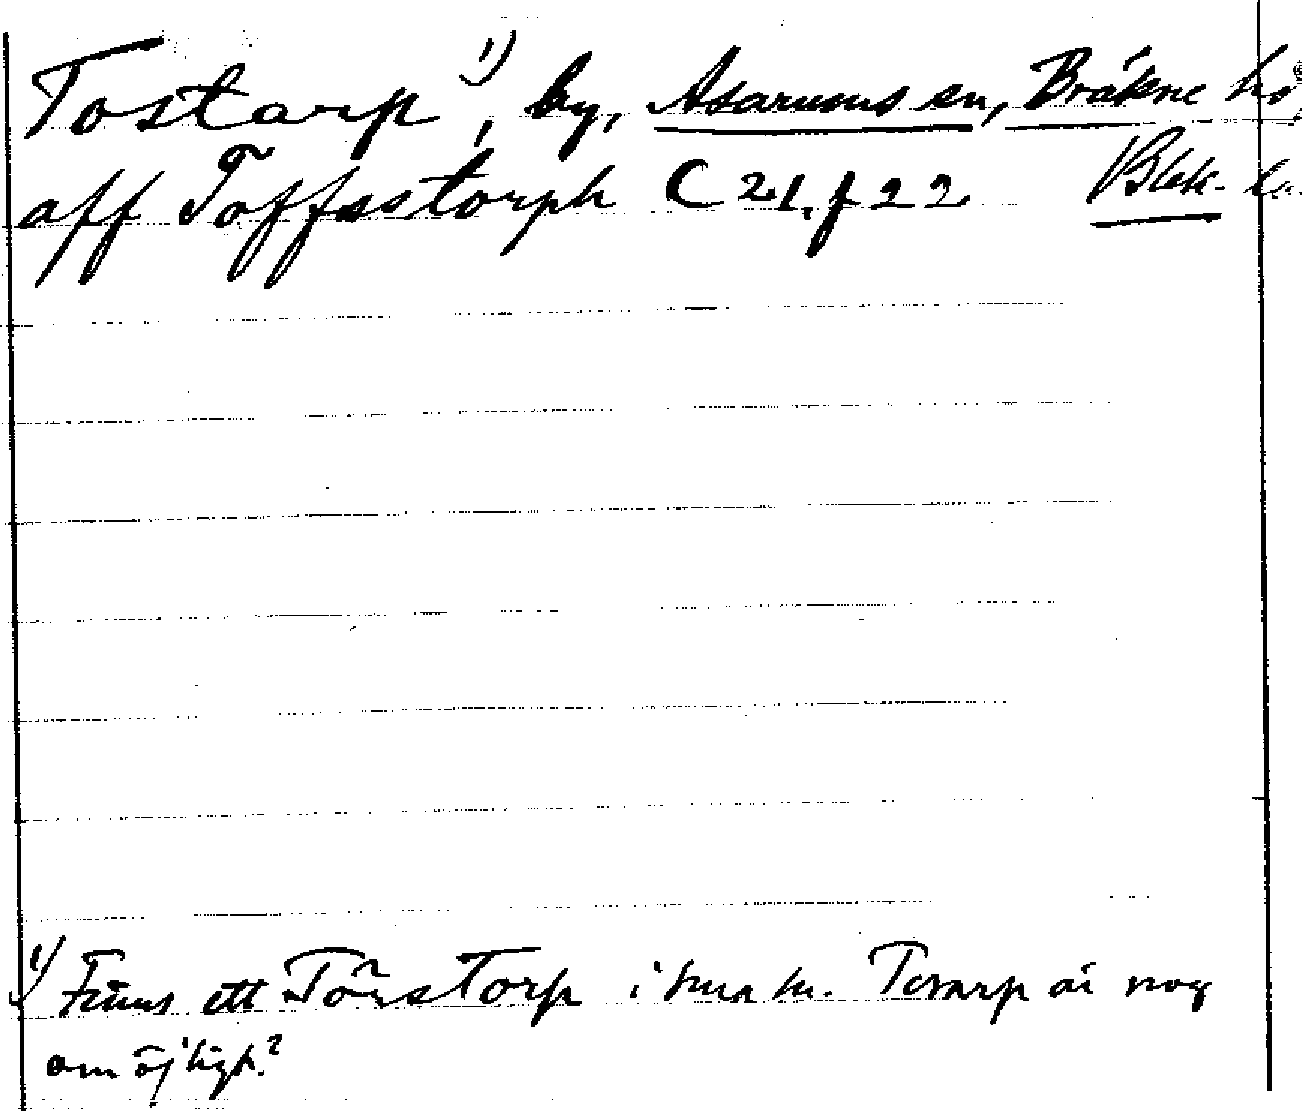 Tostarp ¹), by, Asarums sn, Bräkne hd,
aff Toffsstorph C 21, f 22 Blek. l.
¹) Finns ett Törstorp i sma hd. Tosarp är nog
omöjligt?